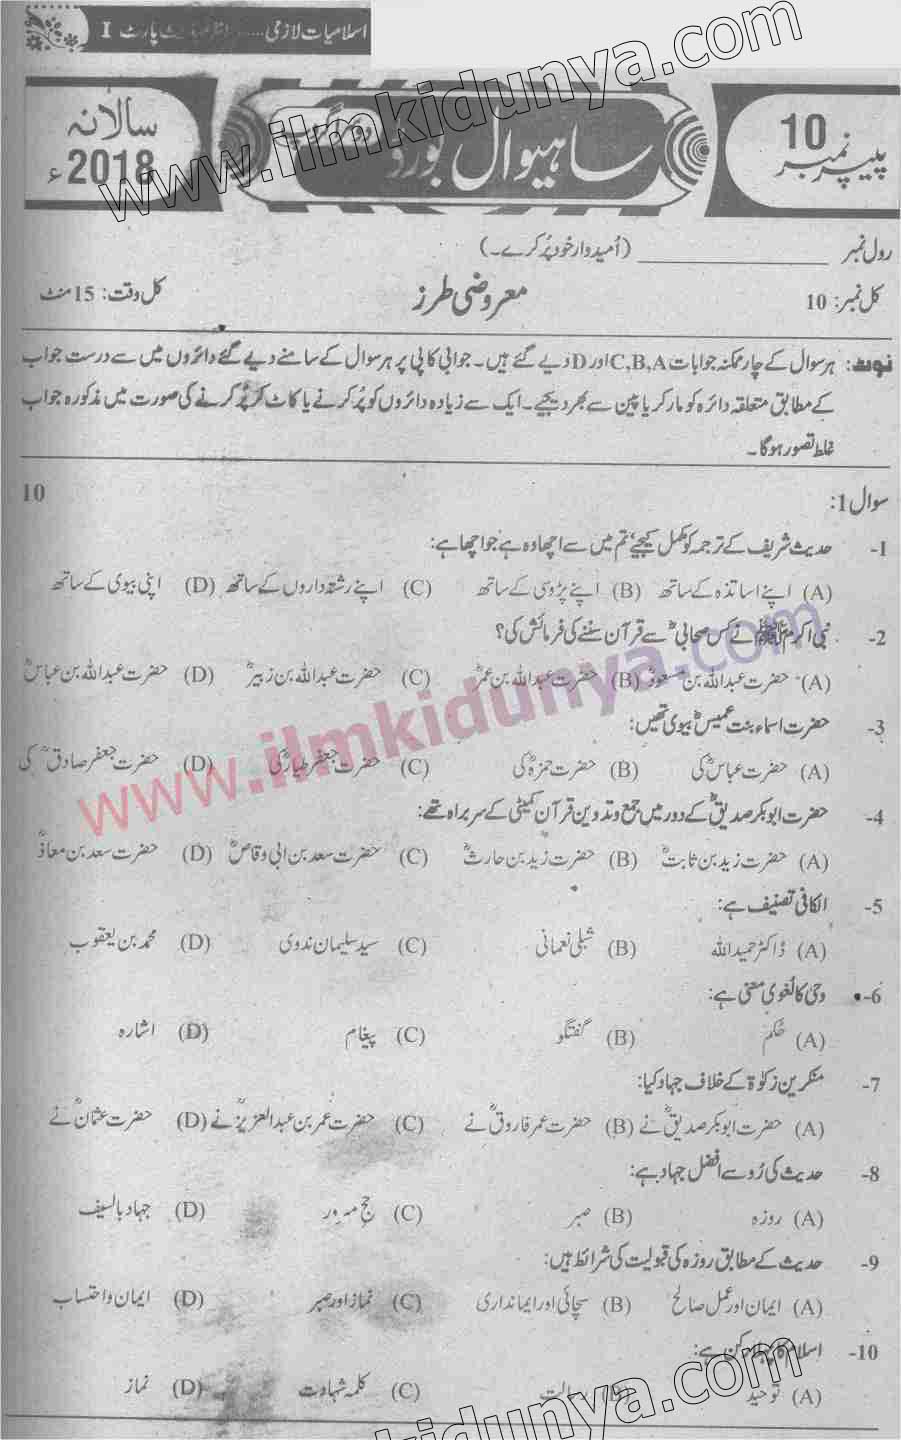 اسلامیات لازمی ..... پارٹ I
www.ilmkidunya.com
پیپر نمبر 10
ساہیوال بورڈ
دوسرا گروپ
سالانہ 2018ء
رول نمبر ____________ (اُمیدوار خود پُر کرے۔)
کل نمبر: 10 معروضی طرز کل وقت: 15 منٹ
نوٹ: ہر سوال کے چار ممکنہ جوابات C,B,A اور D دیے گئے ہیں۔ جوابی کاپی پر ہر سوال کے سامنے دیے گئے دائروں میں سے درست جواب
کے مطابق متعلقہ دائرہ کو مارکر یا پین سے بھر دیجیے۔ ایک سے زیادہ دائروں کو پُر کرنے یا کاٹ کر پُر کرنے کی صورت میں مذکورہ جواب
غلط تصور ہوگا۔
سوال 1: 10
1- حدیث شریف کے ترجمہ کو مکمل کیجیے 'تم میں سے اچھا وہ ہے جو اچھا ہے:
(A) اپنے اساتذہ کے ساتھ (B) اپنے پڑوسی کے ساتھ (C) اپنے رشتہ داروں کے ساتھ (D) اپنی بیوی کے ساتھ
2- نبی اکرم ﷺ نے کس صحابیؓ سے قرآن سننے کی فرمائش کی؟
(A) حضرت عبداللہ بن مسعودؓ (B) حضرت عبداللہ بن عمرؓ (C) حضرت عبداللہ بن زبیرؓ (D) حضرت عبداللہ بن عباسؓ
3- حضرت اسماء بنت عمیسؓ بیوی تھیں:
(A) حضرت عباسؓ کی (B) حضرت حمزہؓ کی (C) حضرت جعفر طیارؓ کی (D) حضرت جعفر صادقؒ کی
4- حضرت ابوبکر صدیقؓ کے دور میں جمع و تدوین قرآن کمیٹی کے سربراہ تھے:
(A) حضرت زید بن ثابتؓ (B) حضرت زید بن حارثؓ (C) حضرت سعد بن ابی وقاصؓ (D) حضرت سعد بن معاذؓ
5- الکافی تصنیف ہے:
(A) ڈاکٹر حمید اللہ (B) شبلی نعمانی (C) سید سلیمان ندوی (D) محمد بن یعقوب
6- وحی کا لُغوی معنی ہے:
(A) حُکم (B) گفتگو (C) پیغام (D) اشارہ
7- منکرین زکوٰۃ کے خلاف جہاد کیا:
(A) حضرت ابوبکر صدیقؓ نے (B) حضرت عمر فاروقؓ نے (C) حضرت عمر بن عبدالعزیزؒ نے (D) حضرت عثمانؓ نے
8- حدیث کی رُو سے افضل جہاد ہے:
(A) روزہ (B) صبر (C) حج مبرور (D) جہاد بالسیف
9- حدیث کے مطابق روزہ کی قبولیت کی شرائط ہیں:
(A) ایمان اور عمل صالح (B) سچائی اور ایمانداری (C) نماز اور صبر (D) ایمان و احتساب
10- اسلام کا پہلا رکن ہے:
(A) توحید (B) رسالت (C) کلمہ شہادت (D) نماز
www.ilmkidunya.com